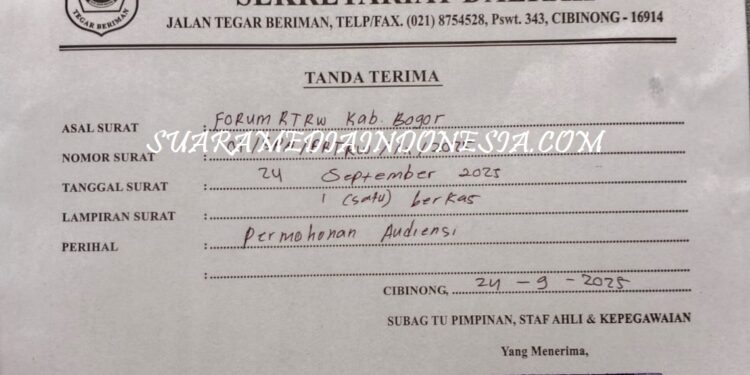 SEKRETARIAT DAERAH
JALAN TEGAR BERIMAN, TELP/FAX. (021) 8754528, Pswt. 343, CIBINONG - 16914
TEGAR BERIMAN
TANDA TERIMA
ASAL SURAT : FORUM RTRW Kab. Bogor
SUARAMEDIAINDONESIA.COM
NOMOR SURAT :
TANGGAL SURAT : 24 September 2025
LAMPIRAN SURAT : 1 (satu) berkas
PERIHAL : Permohonan Audiensi
CIBINONG, 24 - 9 - 2025
SUBAG TU PIMPINAN, STAF AHLI & KEPEGAWAIAN
Yang Menerima,